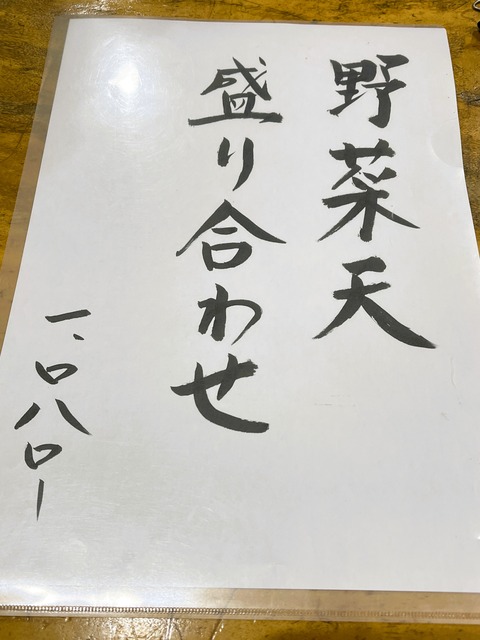 野菜天
盛り合わせ
一、〇八〇ー